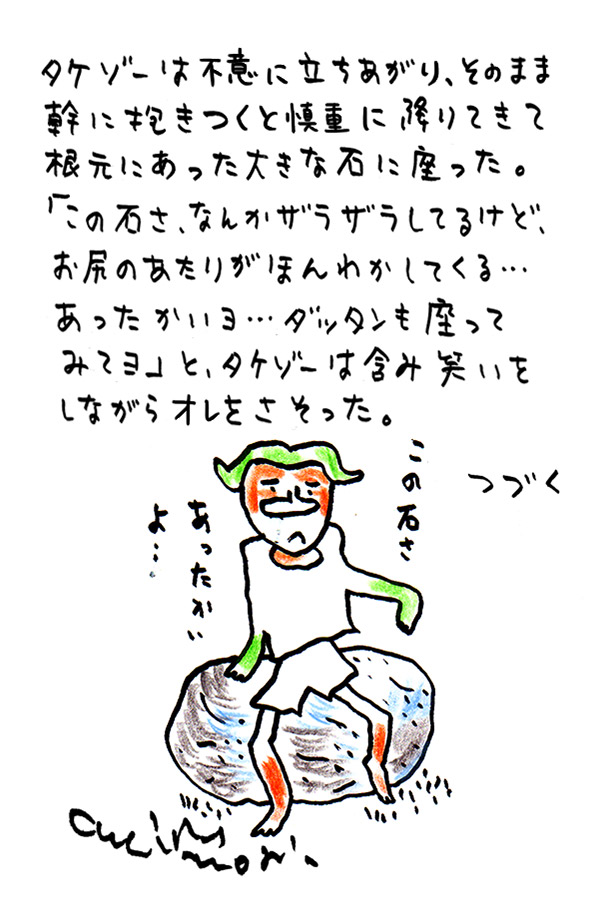 タケゾーは不意に立ちあがり、そのまま
幹に抱きつくと慎重に降りてきて
根元にあった大きな石に座った。
「この石さ、なんかザラザラしてるけど、
お尻のあたりがほんわかしてくる…
あったかいヨ…ダッタンも座って
みてヨ」と、タケゾーは含み笑いを
しながらオレをさそった。
つづく
この石さ
あったかい
よ…